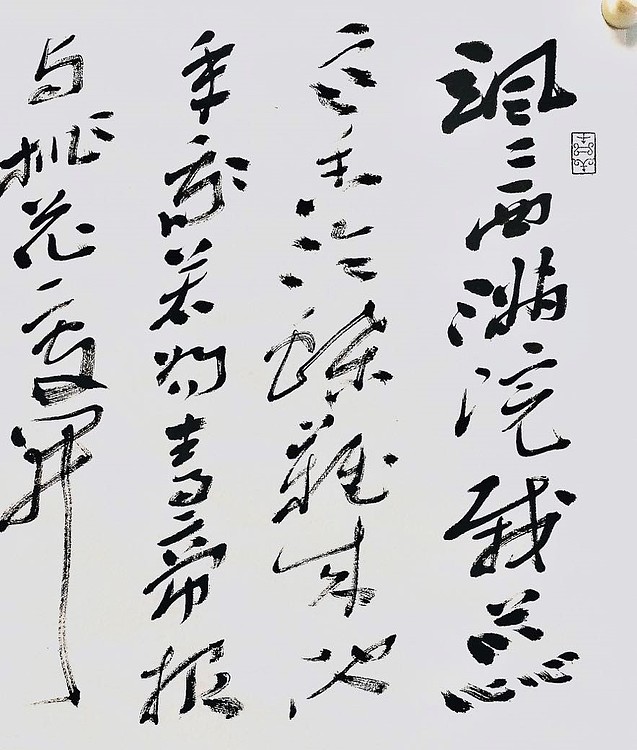 飒飒西满院栽蕊
寒香冷蝶難来他
年我若为青帝报
与桃花一处開